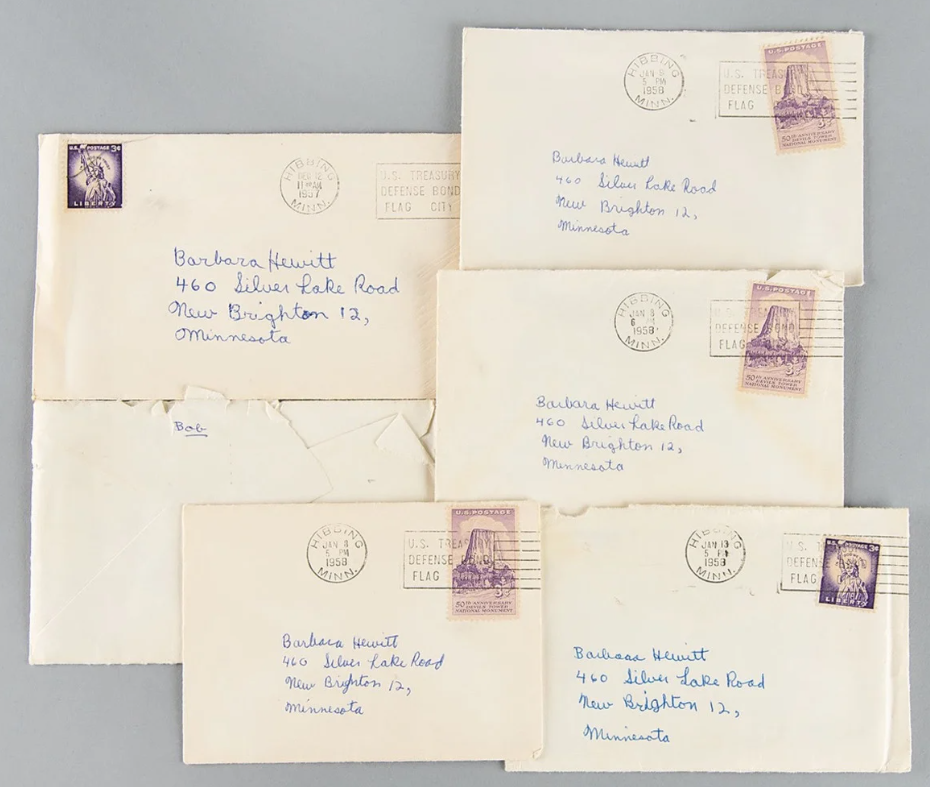 U.S. POSTAGE 3¢
LIBERTY
HIBBING
11 AM
1957
MINN.
U.S. TREASURY
DEFENSE BOND
FLAG CITY
Barbara Hewitt
460 Silver Lake Road
New Brighton 12,
Minnesota
Bob
HIBBING
JAN
5 PM
1958
MINN.
U.S. TREASURY
DEFENSE BOND
FLAG
U.S. POSTAGE
50TH ANNIVERSARY
DEVILS TOWER
NATIONAL MONUMENT
3¢
Barbara Hewitt
460 Silver Lake Road
New Brighton 12,
Minnesota
HIBBING
JAN 8
6 PM
1958
MINN.
DEFENSE BOND
FLAG
U.S. POSTAGE
50TH ANNIVERSARY
DEVILS TOWER
NATIONAL MONUMENT
3¢
Barbara Hewitt
460 Silver Lake Road
New Brighton 12,
Minnesota
HIBBING
JAN 8
5 PM
1958
MINN.
U.S. TREASURY
DEFENSE BOND
FLAG
U.S. POSTAGE
50TH ANNIVERSARY
DEVILS TOWER
NATIONAL MONUMENT
3¢
Barbara Hewitt
460 Silver Lake Road
New Brighton 12,
Minnesota
HIBBING
JAN 13
5 PM
1958
MINN.
U.S.
DEFENSE
FLAG
U.S. POSTAGE 3¢
LIBERTY
Barbara Hewitt
460 Silver Lake Road
New Brighton 12,
Minnesota